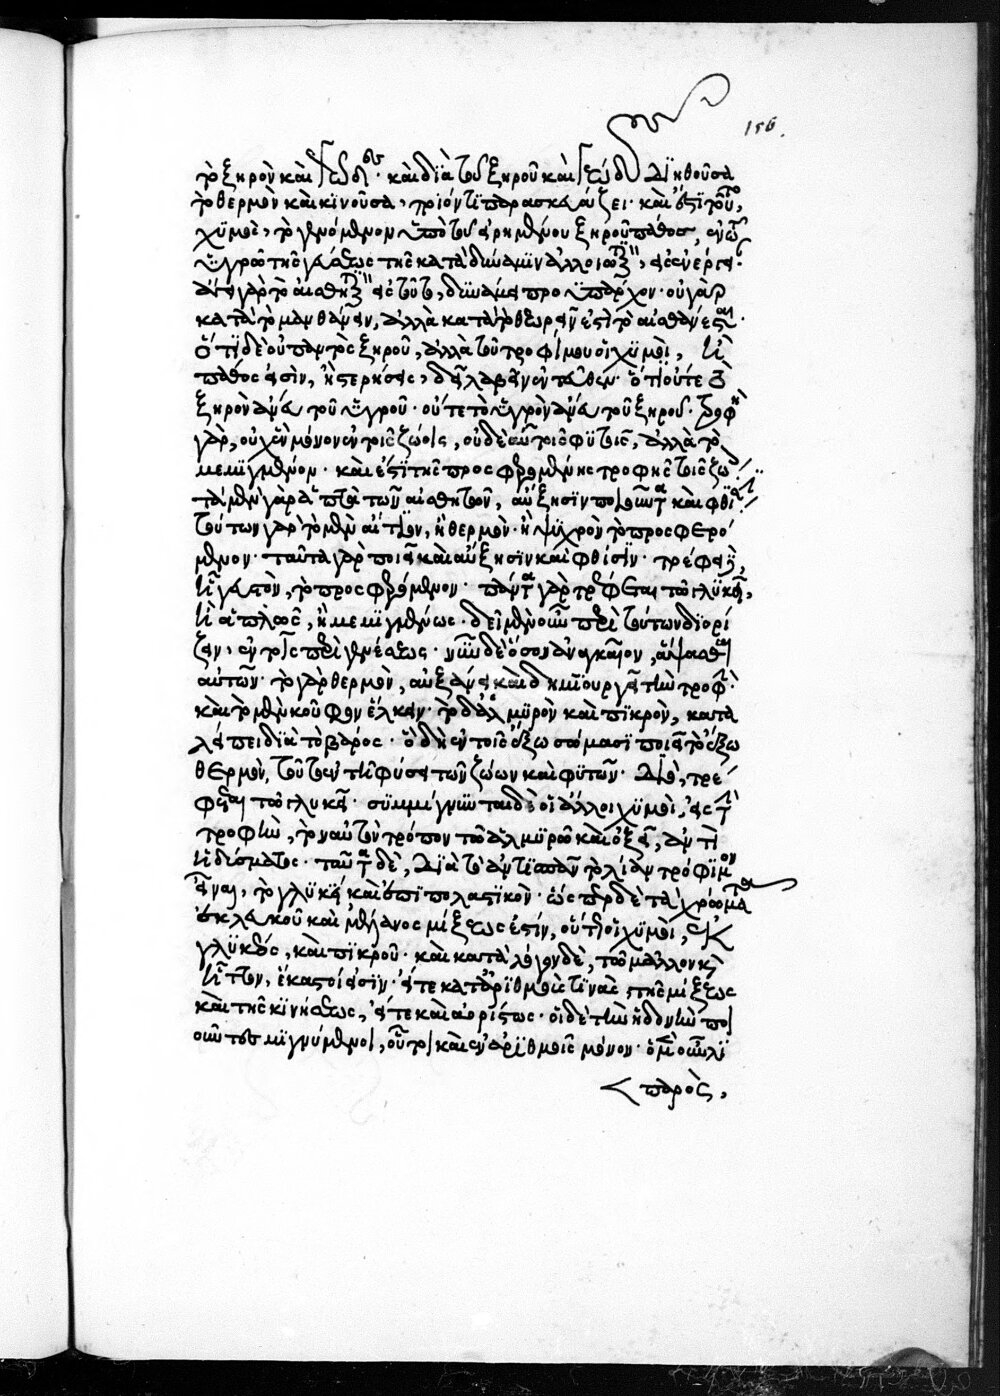 156.
τὸ ξηρὸν καὶ γεῶδες· καὶ διὰ τοῦ ξηροῦ καὶ γεώδους διηθοῦσα
τὸ θερμὸν καὶ κινοῦσα, ποιόν τι παρασκευάζει· καὶ ἔστι τοῦτο,
χυμὸς, τὸ γινόμενον ὑπὸ τοῦ εἰρημένου ξηροῦ πάθος, ἐν τῶ
ὑγρῶ τῆς γεύσεως τῆς κατὰ δύναμιν ἀλλοιωτικὸν, εἰς ἐνέργειαν·
ἄγει γὰρ τὸ αἰσθητικὸν εἰς τοῦτο, δυνάμει προϋπάρχον· οὐ γὰρ
κατὰ τὸ μανθάνειν, ἀλλὰ κατὰ τὸ θεωρεῖν ἐστὶ τὸ αἰσθάνεσθαι·
ὅτι δὲ οὐ παντὸς ξηροῦ, ἀλλὰ τοῦ τροφίμου οἱ χυμοὶ, ἢ
πάθος εἰσὶν, ἢ στέρησις, δεῖ λαβεῖν ἐντεῦθεν· ὅτι οὔτε τὸ
ξηρὸν ἄνευ τοῦ ὑγροῦ· οὔτε τὸ ὑγρὸν ἄνευ τοῦ ξηροῦ· τροφὴ
γὰρ, οὐχ ἓν μόνον ἐν τοῖς ζώοις, οὐδὲ αὖ τοῖς φυτοῖς, ἀλλὰ τὸ
μεμιγμένον· καὶ ἔστι τῆς προσφερομένης τροφῆς τοῖς ζώοις
τὰ μὲν γὰρ ἁπτὰ τῶν αἰσθητῶν, αὔξησιν ποιοῦντα καὶ φθίσιν
τούτων γὰρ τὸ μὲν αἴτιον, ἢ θερμὸν· ἢ ψυχρὸν τὸ προσφερό
μενον· ταῦτα γὰρ ποιεῖ καὶ αὔξησιν καὶ φθίσιν· τρέφει δὲ,
ἢ γευστὸν, τὸ προσφερόμενον· πάντα γὰρ τρέφεται τῶ γλυκεῖ,
ἢ ἁπλῶς, ἢ μεμιγμένως· δεῖ μὲν οὖν περὶ τούτων διορί
ζειν, ἐν τοῖς περὶ γενέσεως· νῦν δὲ ὅσον ἀναγκαῖον, ἅψασθαι
αὐτῶν· τὸ γὰρ θερμὸν, αὐξάνει καὶ δημιουργεῖ τὴν τροφὴν·
καὶ τὸ μὲν κοῦφον ἕλκειν· τὸ δὲ ἁλμυρὸν καὶ πικρὸν, κατα
λείπει διὰ τὸ βάρος· ὃ δὴ ἐν τοῖς ἔξω σώμασι ποιεῖ τὸ ἔξω
θερμὸν, τοῦτο ἐν τῆ φύσει τῶν ζώων καὶ φυτῶν· διὸ, τρέ
φεται τῶ γλυκεῖ· συμμίγνυνται δὲ οἱ ἄλλοι χυμοὶ, εἰς τὴν
τροφὴν, τὸν αὐτὸν τρόπον τῶ ἁλμυρῶ καὶ ὀξεῖ, ἀντὶ
ἡδύσματος· ταῦτα δὲ, διὰ τὸ ἀντισπᾶν τὸ λίαν τρόφιμον
εἶναι, τὸ γλυκὺ καὶ ἐπιπολαστικὸν· ὥσπερ δὲ τὰ χρώματα
ἐκ λευκοῦ καὶ μέλανος μίξεώς ἐστιν, οὕτως οἱ χυμοὶ, ἐκ
γλυκέος, καὶ πικροῦ· καὶ κατὰ λόγον δὲ, τῶ μᾶλλον καὶ
ἧττον, ἕκαστοί εἰσιν· εἴτε κατ' ἀριθμούς τινας τῆς μίξεως
καὶ τῆς κινήσεως, εἴτε καὶ ἀορίστως· οἱ δὲ τὴν ἡδονὴν ποι
οῦντες μιγνύμενοι, οὗτοι καὶ ἐν ἀριθμοῖς μόνον· ὁ μὲν οὖν λι
παρὸς,